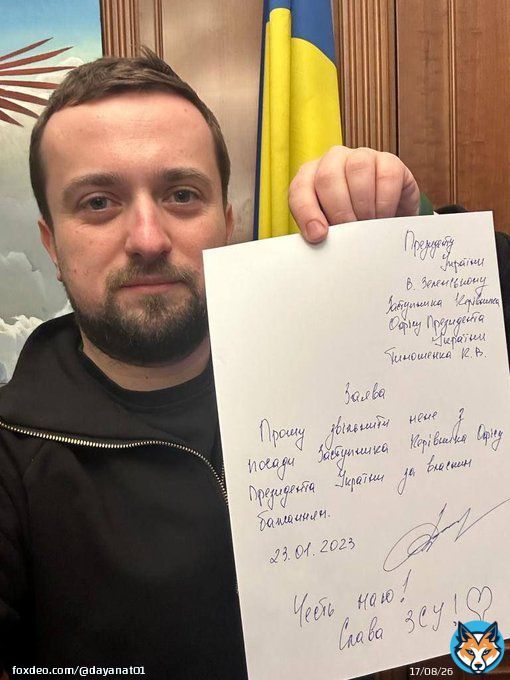 Президенту
України
В. Зеленському
Заступника Керівника
Офісу Президента
України
Тимошенка К.В.
Заява
Прошу звільнити мене з
посади Заступника Керівника Офісу
Президента України за власним
бажанням.
23.01.2023
Честь маю!
Слава ЗСУ!
foxdeo.com/@dayanat01
17/08/26